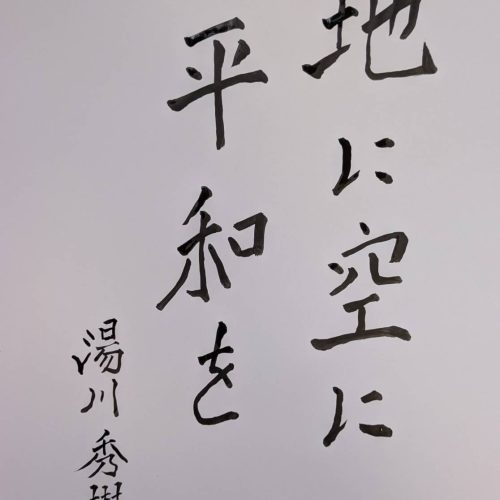 地に空に
平和を
湯川秀樹